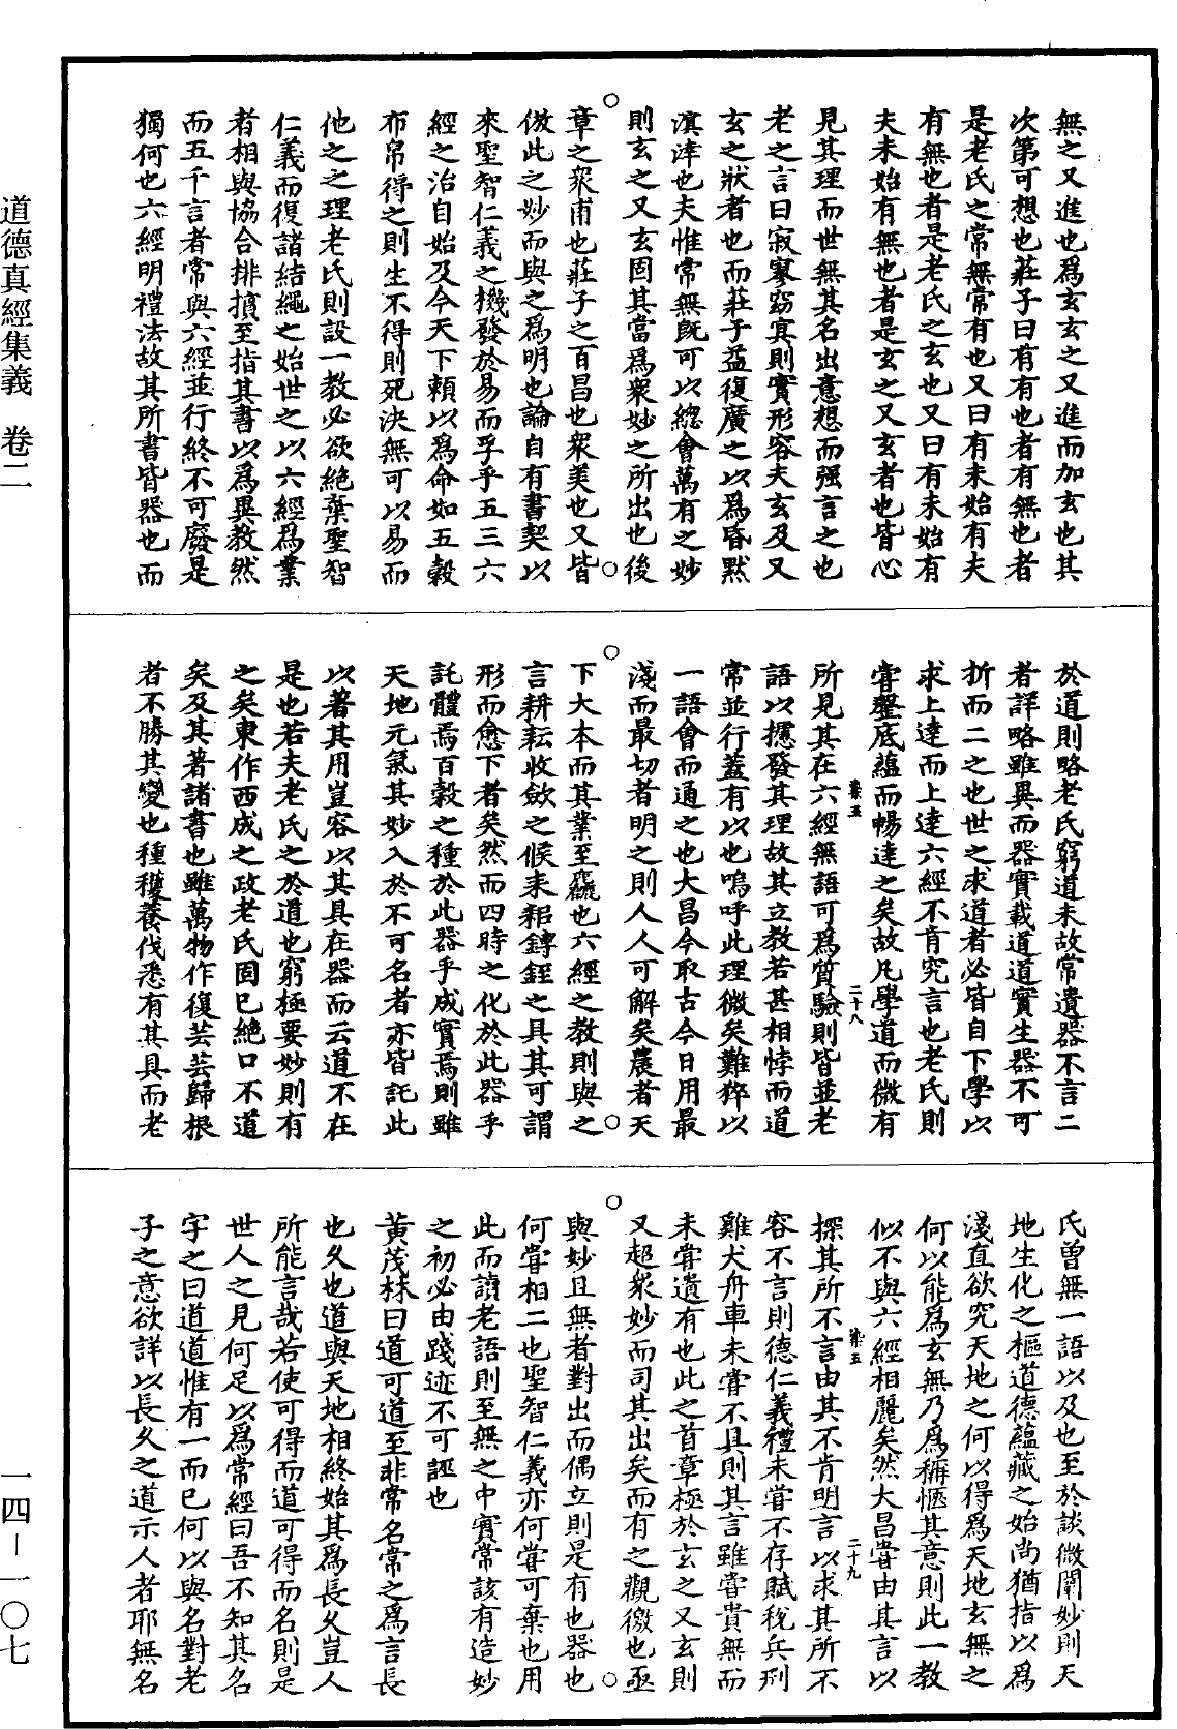 道德真經集義　卷二
一四－一〇七
無之又進也爲玄玄之又進而加玄也其
次第可想也莊子曰有有也者有無也者
是老氏之常無常有也又曰有未始有夫
有無也者是老氏之玄也又曰有未始有
夫未始有無也者是玄之又玄者也皆心
見其理而世無其名出意想而强言之也
老之言曰寂寥窈冥則實形容夫玄及又
玄之狀者也而莊子益復廣之以爲昏默
滇涬也夫惟常無旣可以緫會萬有之妙
則玄之又玄固其當爲衆妙之所出也後
章之衆甫也莊子之百昌也衆美也又皆
倣此之妙而與之爲明也論自有書契以
來聖智仁義之機發於易而孚乎五三六
經之治自始及今天下頼以爲命如五穀
布帛得之則生不得則死決無可以易而
他之之理老氏則設一教必欲絶棄聖智
仁義而復諸結繩之始世之以六經爲業
者相與協合排擯至指其書以爲異教然
而五千言者常與六經並行終不可廢是
獨何也六經明禮法故其所書皆器也而
於道則略老氏窮道末故常遺器不言二
者詳略雖異而器實載道道實生器不可
折而二之也世之求道者必皆自下學以
求上達而上達六經不肯究言也老氏則
嘗罄底蘊而暢達之矣故凡學道而微有
所見其在六經無語可爲質驗則皆並老
語以攄發其理故其立教若甚相悖而道
常並行蓋有以也嗚呼此理微矣難猝以
一語會而通之也大昌今取古今日用最
淺而最切者明之則人人可解矣農者天
下大本而其業至麤也六經之教則與之
言耕耘收斂之候耒耜鎛銍之具其可謂
形而愈下者矣然而四時之化於此器乎
託體焉百穀之種於此器乎成實焉則雖
天地元氣其妙入於不可名者亦皆託此
以著其用豈容以其具在器而云道不在
是也若夫老氏之於道也窮極要妙則有
之矣東作西成之政老氏固已絶口不道
矣及其著諸書也雖萬物作復芸芸歸根
者不勝其變也種穫養伐悉有其具而老
氏曾無一語以及也至於談微闡妙則天
地生化之樞道德蘊藏之始尚猶指以爲
淺直欲究天地之何以得爲天地玄無之
何以能爲玄無乃爲稱愜其意則此一教
似不與六經相麗矣然大昌嘗由其言以
探其所不言由其不肯明言以求其所不
容不言則德仁義禮未嘗不存賦稅兵刑
雞犬舟車未嘗不具則其言雖嘗貴無而
未嘗遺有也此之首章極於玄之又玄則
又超衆妙而司其出矣而有之觀徼也亟
與妙且無者對出而偶立則是有也器也
何嘗相二也聖智仁義亦何嘗可棄也用
此而讀老語則至無之中實常該有造妙
之初必由踐迹不可誣也
黄茂林曰道可道至非常名常之爲言長
也久也道與天地相終始其爲長久豈人
所能言哉若使可得而道可得而名則是
世人之見何足以爲常經曰吾不知其名
字之曰道道惟有一而已何以與名對老
子之意欲詳以長久之道示人者耶無名
染五
二十八
染五
二十九